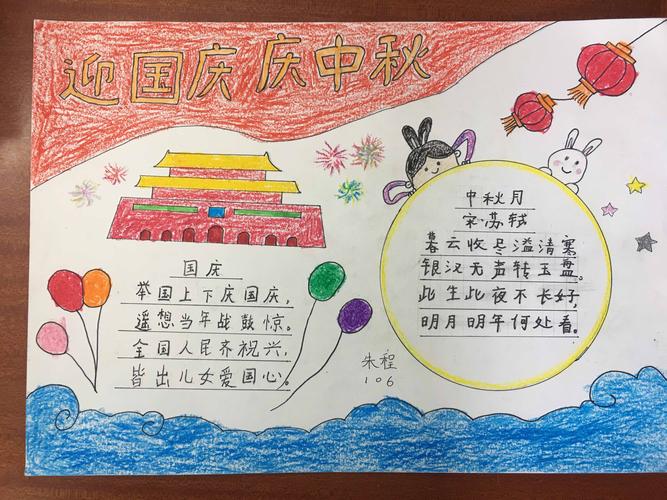 迎国庆 庆中秋
国庆
举国上下庆国庆，
遥想当年战鼓惊。
全国人民齐祝兴，
皆出儿女爱国心。
中秋月
宋·苏轼
暮云收尽溢清寒
银汉无声转玉盘。
此生此夜不长好，
明月明年何处看。
朱程
106